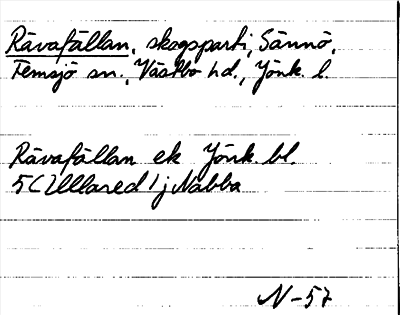 Rävafällan, skogsparti, Sännö,
Femsjö sn., Västbo hd., Jönk. l.
Rävafällan ek Jönk. bl.
5C Ullared 1j Nabba
N-57